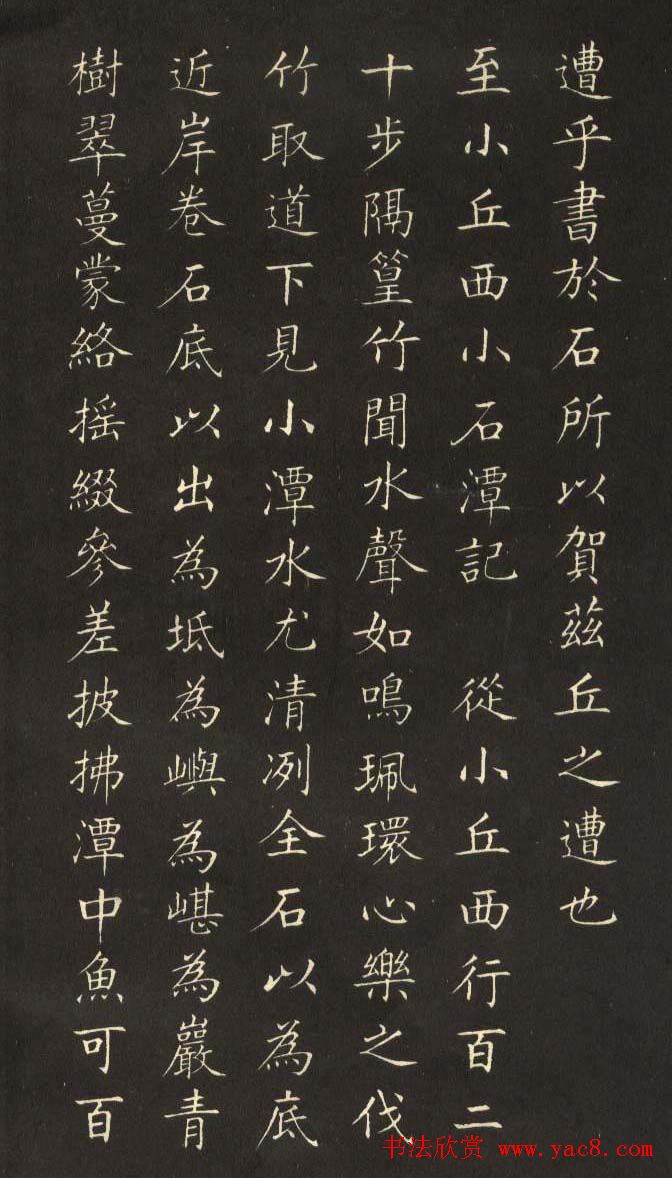 遭乎書於石所以賀茲丘之遭也
至小丘西小石潭記　從小丘西行百二
十步隔篁竹聞水聲如鳴珮環心樂之伐
竹取道下見小潭水尤清冽全石以為底
近岸卷石底以出為坻為嶼為嵁為巖青
樹翠蔓蒙絡摇綴參差披拂潭中魚可百
书法欣赏 www.yac8.com